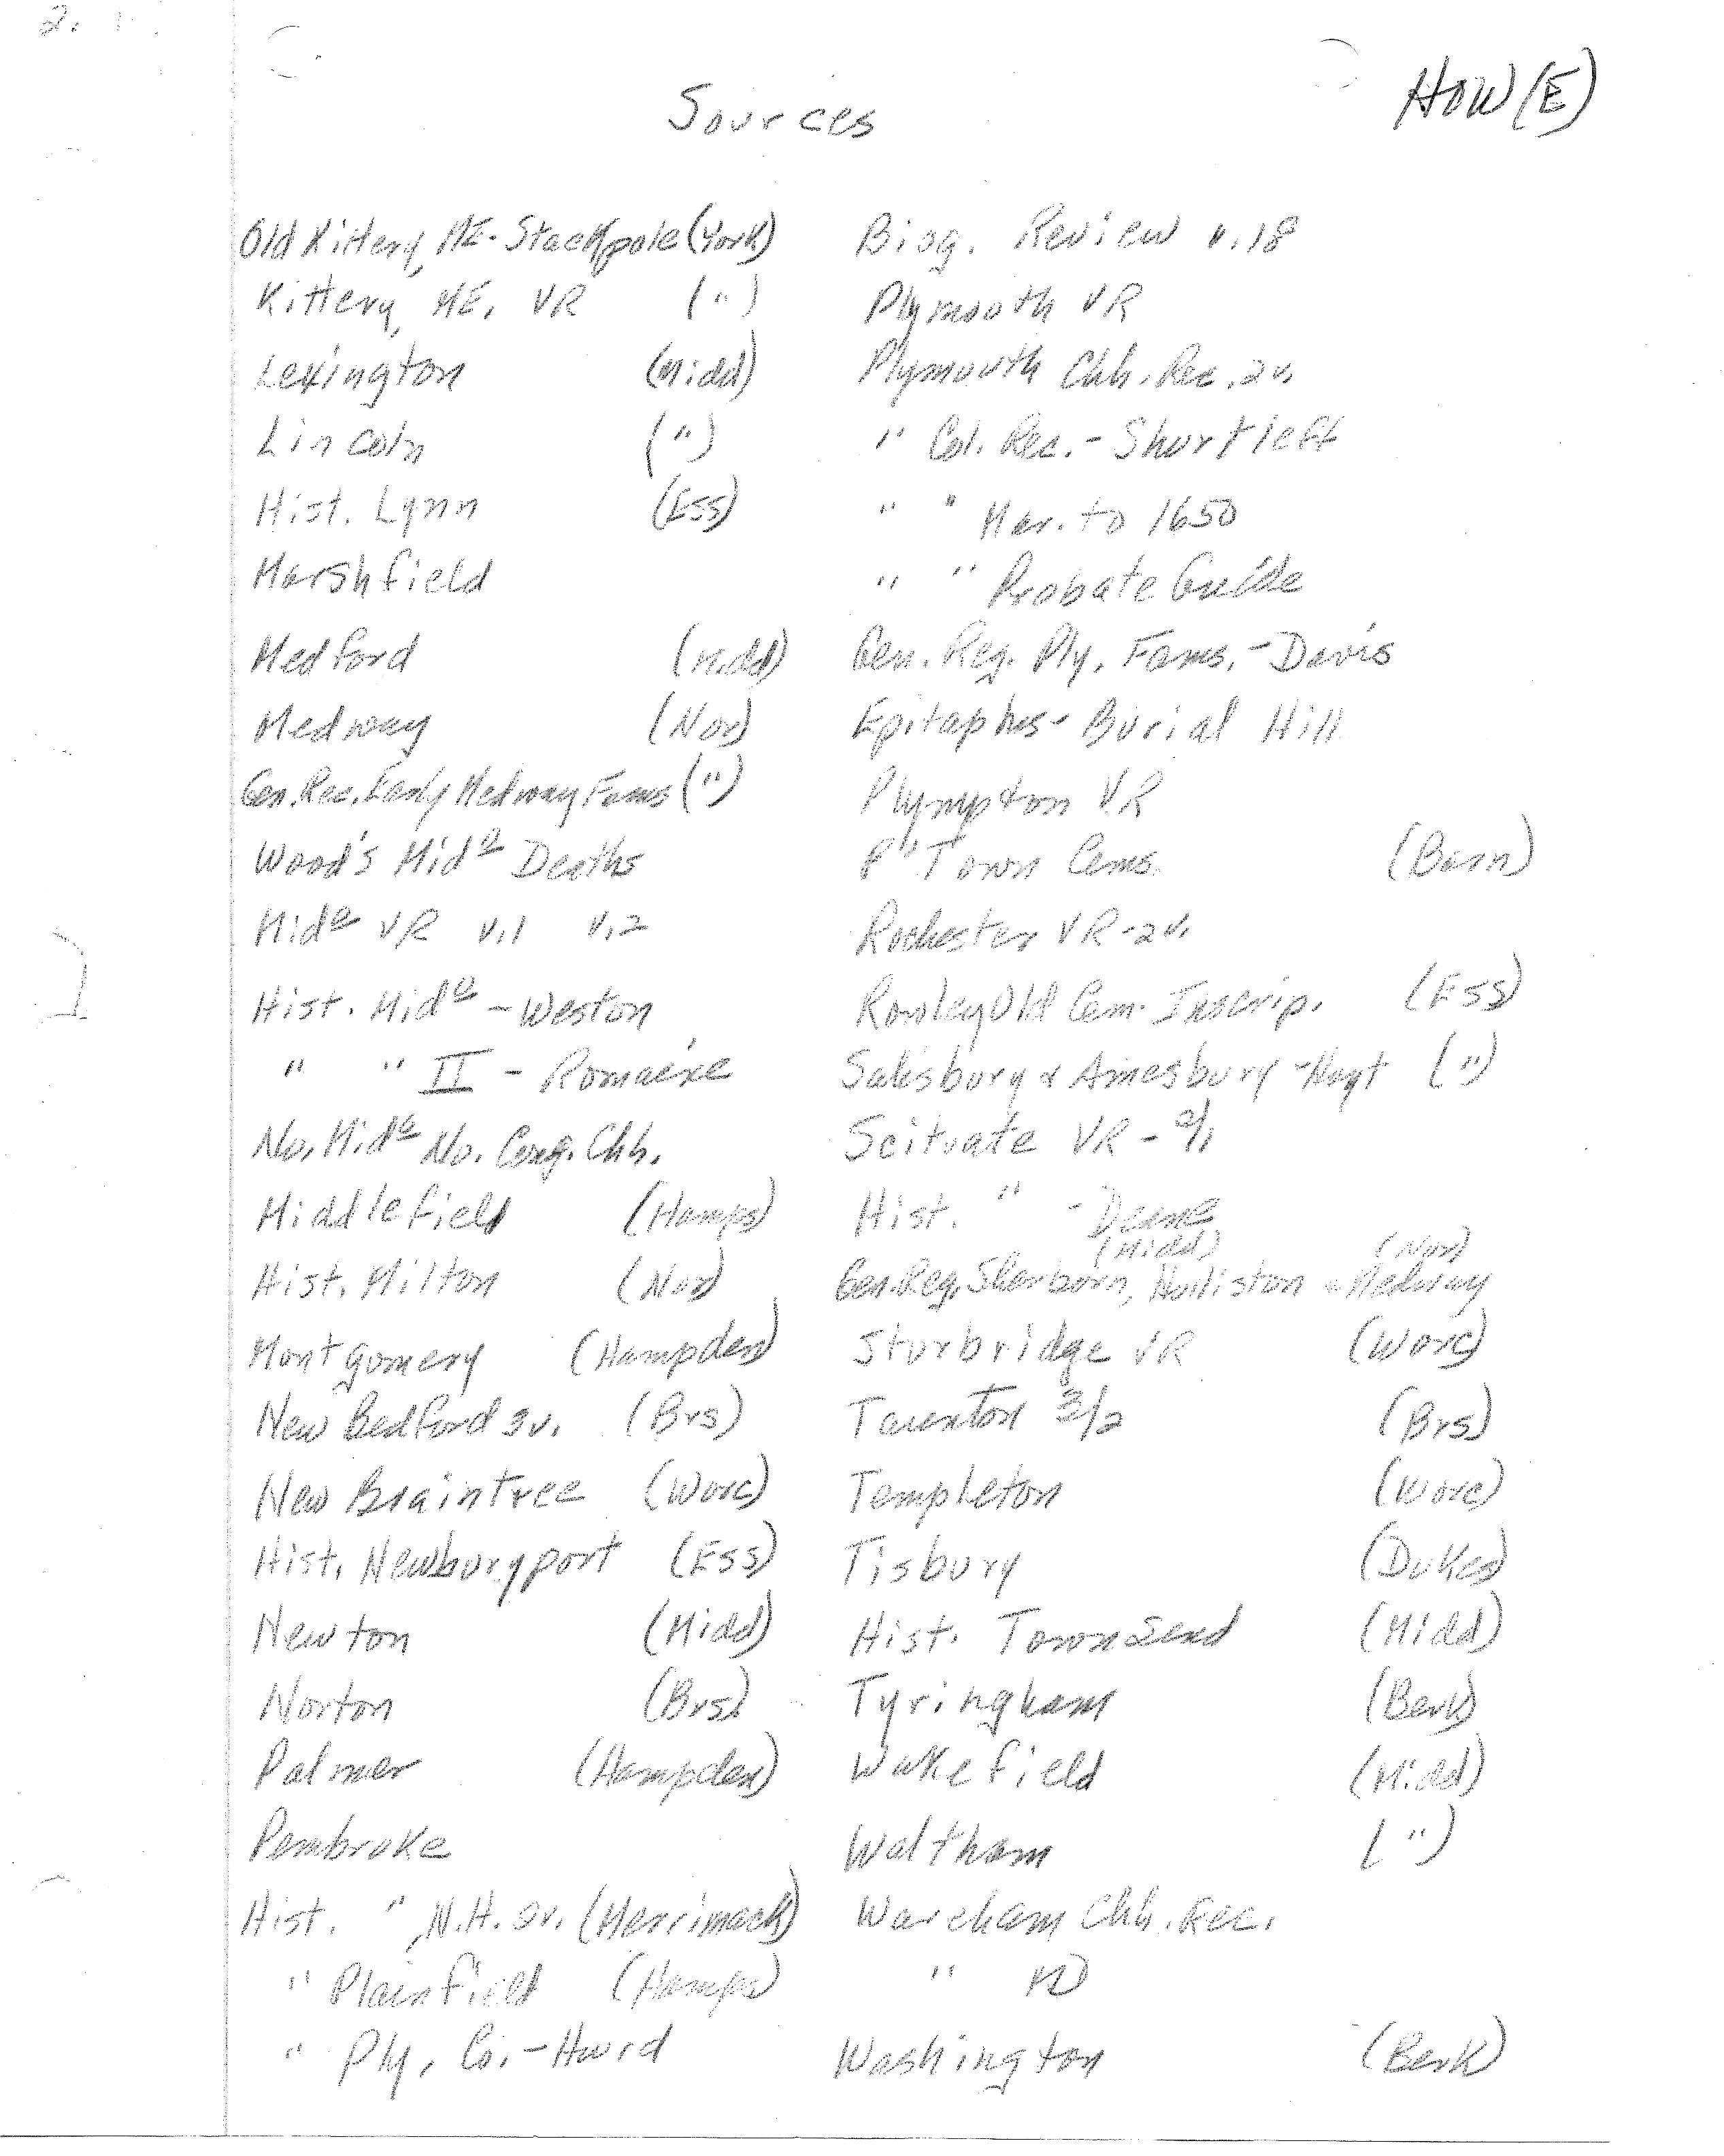 2.
HOW(E)
Sources
Old Kittery, ME. - Stackpole (York)
Kittery, ME. VR (")
Lexington (Midd)
Lincoln (")
Hist. Lynn (Ess)
Marshfield
Medford (Midd)
Medway (Nor)
Gen. Rec. Early Medway Fams (")
Wood's Mid° Deaths
Mid° VR v.1 v.2
Hist. Mid° - Weston
" " II - Romaine
No. Mid° No. Cong. Chh.
Middlefield (Hamps)
Hist. Milton (Nor)
Montgomery (Hampden)
New Bedford 3v. (Brs)
New Braintree (Worc)
Hist. Newburyport (Ess)
Newton (Midd)
Norton (Brs)
Palmer (Hampden)
Pembroke
Hist. ", N.H. 2v. (Merrimack)
" Plainfield (Hamps)
" Ply. Co. - Hurd
Biog. Review v.18
Plymouth VR
Plymouth Chh. Rec. 2v.
" Col. Rec. - Shurtleff
" " Mar. to 1650
" " Probate Guide
Gen. Reg. Ply. Fams. - Davis
Epitaphs - Burial Hill
Plympton VR
P" Town Cems. (Barn)
Rochester VR - 2v.
Rowley Old Cem. Inscrip. (Ess)
Salisbury & Amesbury - Hoyt (")
Scituate VR - 2/1
Hist. " - Deane
(Midd) (Nor)
Gen. Reg. Sherborn, Holliston & Medway
Sturbridge VR (Worc)
Taunton 3/2 (Brs)
Templeton (Worc)
Tisbury (Dukes)
Hist. Townsend (Midd)
Tyringham (Berk)
Wakefield (Midd)
Waltham (")
Wareham Chh. Rec.
" VR
Washington (Berk)